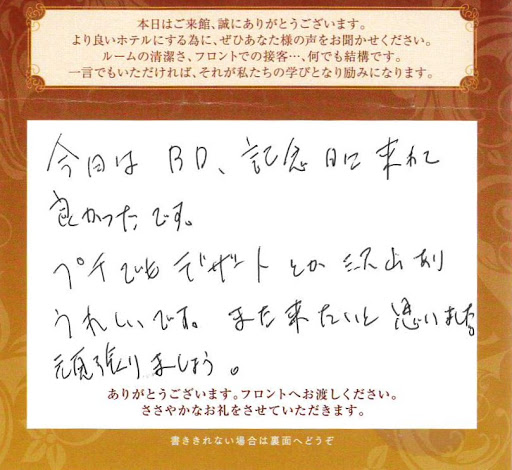 本日はご来館、誠にありがとうございます。
より良いホテルにする為に、ぜひあなた様の声をお聞かせください。
ルームの清潔さ、フロントでの接客…、何でも結構です。
一言でもいただければ、それが私たちの学びとなり励みになります。
今日は BD、記念日に来れて
良かったです。
プチでもデザートとか沢山あり
うれしいです。また来たいと思いました
頑張りましょう。
ありがとうございます。フロントへお渡しください。
ささやかなお礼をさせていただきます。
書ききれない場合は裏面へどうぞ